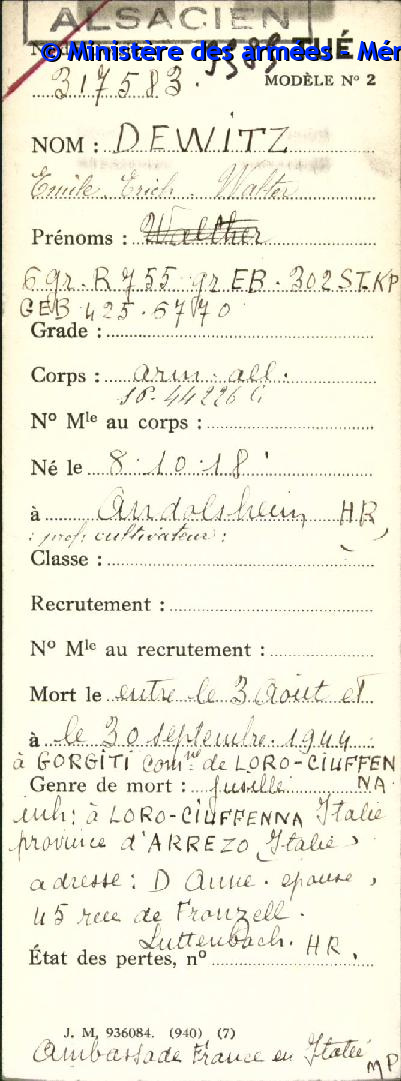 ALSACIEN
© Ministère des armées - Mér
TUÉ
317583. MODÈLE Nº 2
NOM : DEWITZ
Emile. Erich. Walter
Prénoms : Walther
6 gr. R 755 gr EB. 302 ST.KP
GEB 425. 67870
Grade :
Corps : arm. all.
sp. 44226 G
Nº Mle au corps :
Né le 8.10.18
à Andolsheim, HR
: prof. cultivateur :
Classe :
Recrutement :
Nº Mle au recrutement :
Mort le entre le 3 Août et
à le 30 septembre. 1944
à GORGITI Comne de LORO-CIUFFEN
Genre de mort : fusillé NA
inh: à LORO-CIUFFENNA Italie
province d'ARREZO Italie,
adresse: D Anne. épouse,
45 rue de Fronzell.
Luttenbach. HR.
État des pertes, nº
J. M, 936084. (940) (7)
Ambassade France en Italie
MP